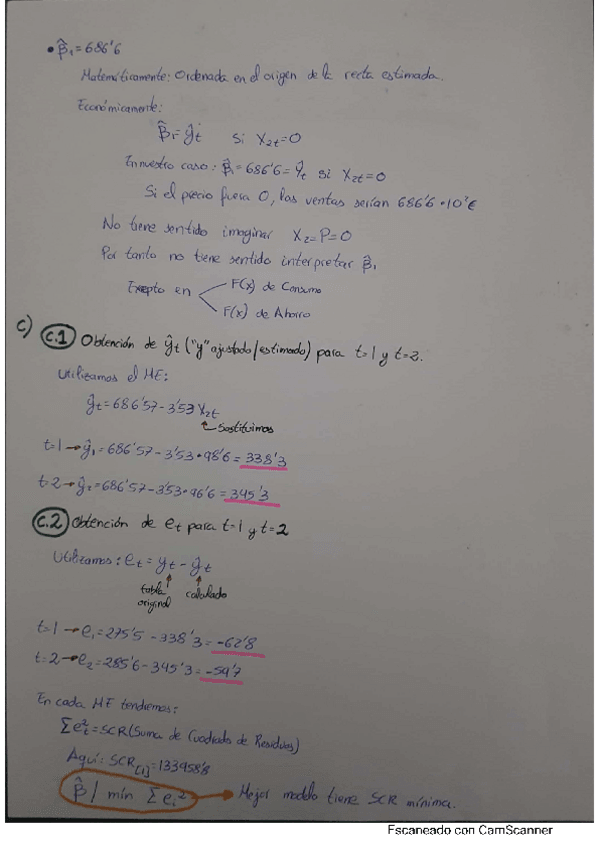 • β̂₁ = 686'6
Matemáticamente: Ordenada en el origen de la recta estimada.
Económicamente:
β̂₁ = ŷt si X2t = 0
En nuestro caso: β̂₁ = 686'6 = ŷt si X2t = 0
Si el precio fuera 0, las ventas serían 686'6 · 10³ €
No tiene sentido imaginar X2 = P = 0
Por tanto no tiene sentido interpretar β̂₁
Exepto en
F(x) de Consumo
F(x) de Ahorro
c) c.1 Obtención de ŷt ("y" ajustado/estimado) para t=1 y t=2.
Utilizamos el ME:
ŷt = 686'57 - 3'53 X2t
Sustituimos
t=1 → ŷ₁ = 686'57 - 3'53 · 98'6 = 338'3
t=2 → ŷ₂ = 686'57 - 3'53 · 96'6 = 345'3
c.2 Obtención de et para t=1 y t=2
Utilizamos: et = yt - ŷt
tabla original
calculado
t=1 → e₁ = 275'5 - 338'3 = -62'8
t=2 → e₂ = 285'6 - 345'3 = -59'7
En cada ME tendremos:
Σet² = SCR (Suma de Cuadrado de Residuos)
Aquí: SCR[1] = 133958'8
β̂ / mín Σei² → Mejor modelo tiene SCR mínima.
Escaneado con CamScanner